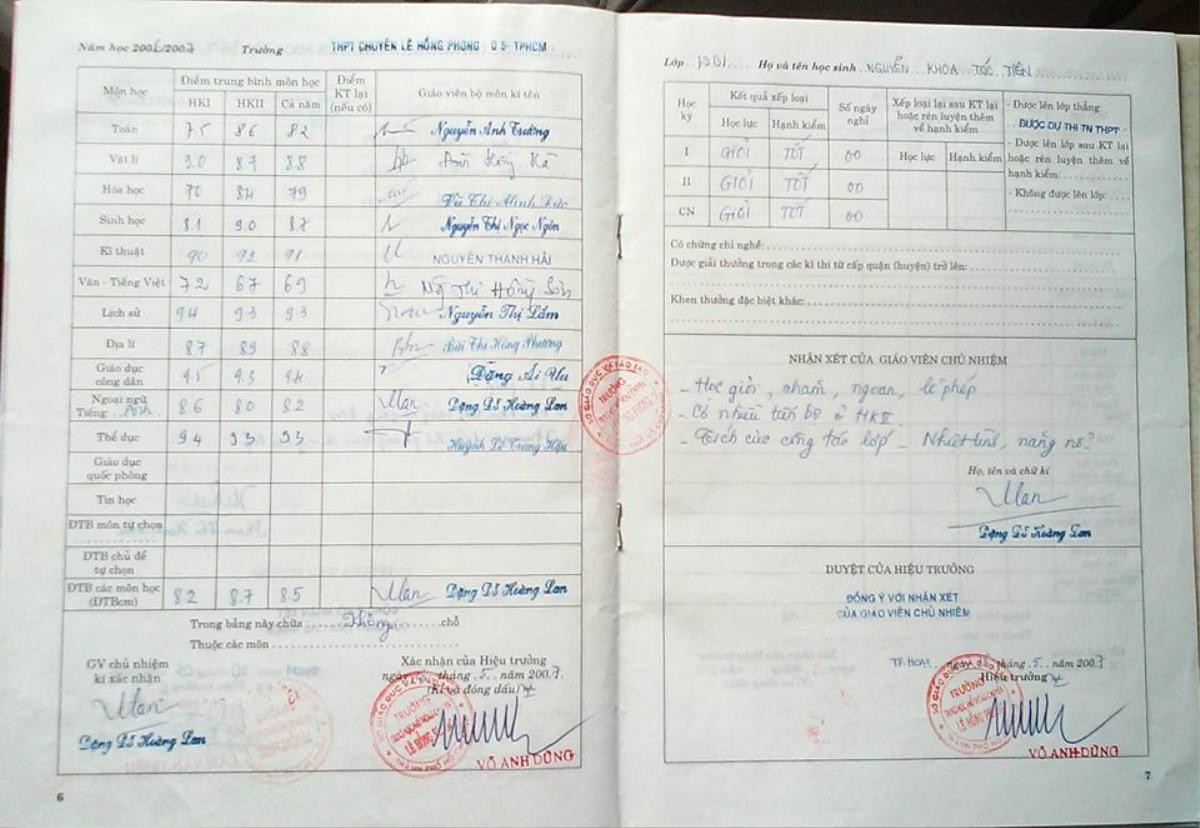 Năm học 2006/2007 Trường THPT CHUYÊN LÊ HỒNG PHONG Q.5- TPHCM
Môn học Điểm trung bình môn học Điểm KT lại (nếu có) Giáo viên bộ môn kí tên
HKI HKII Cả năm
Toán 7.5 8.6 8.2 Nguyễn Anh Trường
Vật lí 9.0 8.7 8.8
Hóa học 7.0 8.4 7.9 Vũ Thị Minh Đức
Sinh học 8.1 9.0 8.7 Nguyễn Thị Ngọc Ngôn
Kĩ thuật 9.0 9.2 9.1 NGUYỄN THANH HẢI
Văn - Tiếng Việt 7.2 6.7 6.9 Ng Thị Hồng Sơn
Lịch sử 9.4 9.3 9.3 Nguyễn Thị Lắm
Địa lí 8.7 8.9 8.8 Bùi Thị Hồng Phương
Giáo dục công dân 9.5 9.3 9.4 Đặng Ái Vu
Ngoại ngữ
Tiếng: Anh 8.6 8.0 8.2 Đặng Đỗ Hoàng Lan
Thể dục 9.4 9.3 9.3 Huỳnh Lê Trung Hậu
Giáo dục quốc phòng
Tin học
ĐTB môn tự chọn
ĐTB chủ đề tự chọn
ĐTB các môn học (ĐTBcm) 8.2 8.7 8.5 Đặng Đỗ Hoàng Lan
Trong bảng này chữa Không chỗ
Thuộc các môn
GV chủ nhiệm
kí xác nhận
Đặng Đỗ Hoàng Lan
Xác nhận của Hiệu trưởng
ngày tháng 5 năm 2007
(Kí và đóng dấu)
VÕ ANH DŨNG
6
Lớp Họ và tên học sinh NGUYỄN KHOA TÓC TIÊN
Học kỳ Kết quả xếp loại Số ngày nghỉ Xếp loại lại sau KT lại hoặc rèn luyện thêm về hạnh kiểm
Học lực Hạnh kiểm Học lực Hạnh kiểm
I GIỎI TỐT 00
II GIỎI TỐT 00
CN GIỎI TỐT 00
- Được lên lớp thẳng
ĐƯỢC DỰ THI TN THPT
- Được lên lớp sau KT lại
hoặc rèn luyện thêm về
hạnh kiểm:
- Không được lên lớp:
Có chứng chỉ nghề:
Được giải thưởng trong các kì thi từ cấp quận (huyện) trở lên:
Khen thưởng đặc biệt khác:
NHẬN XÉT CỦA GIÁO VIÊN CHỦ NHIỆM
- Học giỏi, chăm, ngoan, lễ phép
- Có nhiều tiến bộ ở HKII.
- Tích cực công tác lớp - Nhiệt tình, năng nổ.
Họ, tên và chữ kí
Đặng Đỗ Hoàng Lan
DUYỆT CỦA HIỆU TRƯỞNG
ĐỒNG Ý VỚI NHẬN XÉT
CỦA GIÁO VIÊN CHỦ NHIỆM
TP.HCM ngày tháng 5 năm 2007
Hiệu trưởng
VÕ ANH DŨNG
7